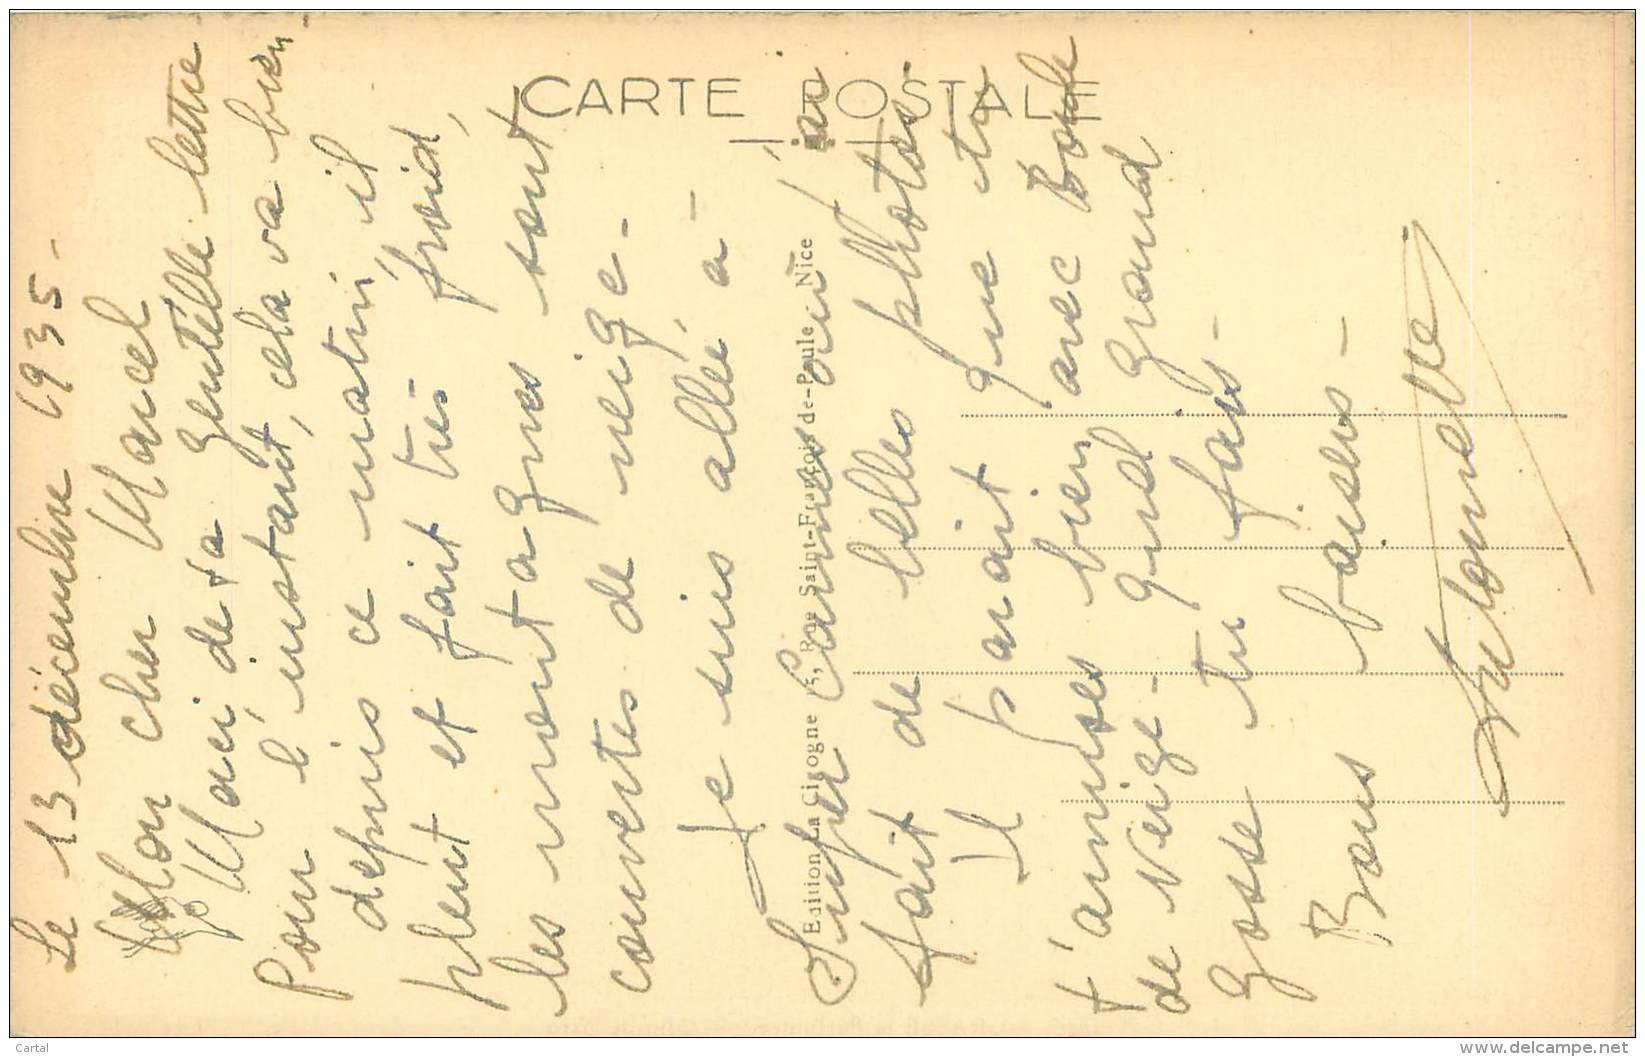 Le 13 décembre 1935-
Mon cher Marcel
Merci de ta gentille lettre
Pour l'instant, cela va bien-
depuis ce matin, il
pleut et fait très froid,
les montagnes sont
couvertes de neige-
Je suis allée, a-
Super Cannes où j'ai
fait de belles photos
Il parait que tu
t'amuses bien avec Boule
de Neige- quel grand
Gosse tu fais-
Bons baisers-
Antoinette
CARTE POSTALE
Edition La Cigogne 15, Rue Saint-François-de-Paule Nice
Cartal
delcampe.net